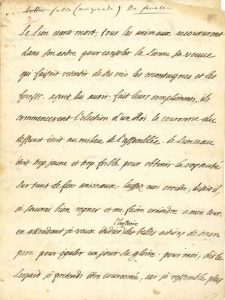 Le Lion etant mort, tous les animaux accoururent
dans son antre pour consoler la Lionne sa veuve
qui faisoit retentir de ses cris les montagnes et les
forests. apres luy avoir fait leurs complimens, ils
commencerent l'election d'un Roi. la couronne du
deffunt etoit au milieu de l'assemblée. le Lionceau
etoit trop jeune et trop foible pour obtenir la royauté
sur tant de fiers animaux. laissez moi croitre, disoit il
je scaurai bien regner et me faire craindre a mon tour.
en attendant je veux étudier l'histoire des belles actions de mon
pere pour egaler un jour sa gloire. pour moi, dit le
Leopard je pretends etre couronné, car je ressemble plus